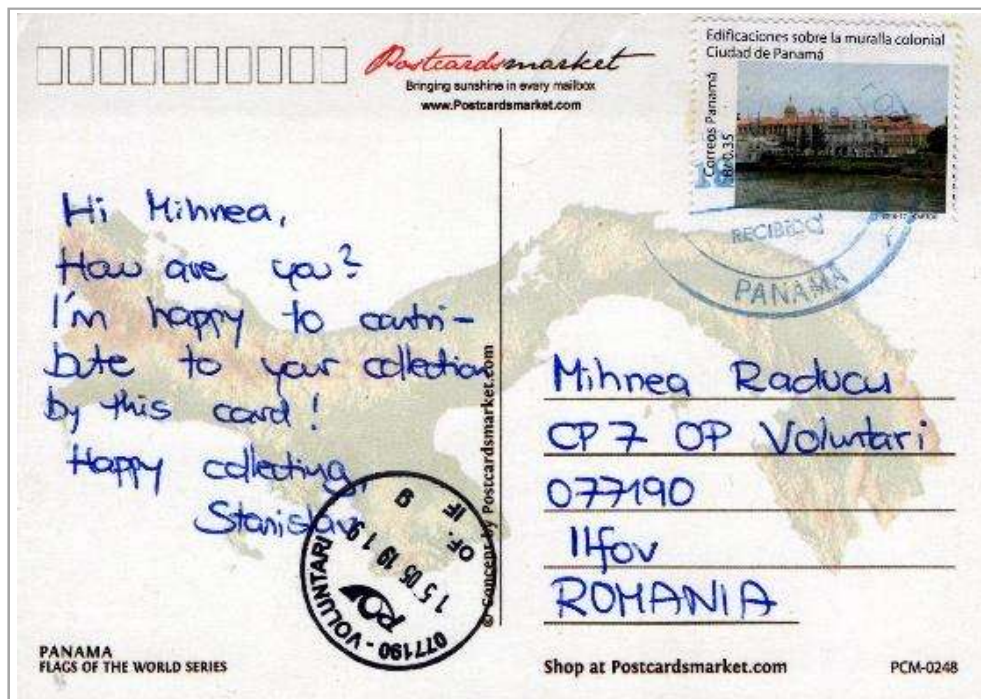 Postcardsmarket
Bringing sunshine in every mailbox
www.Postcardsmarket.com
Edificaciones sobre la muralla colonial
Ciudad de Panamá
Correos Panamá
B/ 0.35
RECIBIDO
PANAMA
Hi Mihnea,
How are you?
I'm happy to contri-
bute to your collection
by this card!
Happy collecting,
Stanislav
Mihnea Raducu
CP 7 OP Voluntari
077190
Ilfov
ROMANIA
© concept by Postcardsmarket.com
077190 - VOLUNTARI
OF. IF
9
15 05 19 19
PANAMA
FLAGS OF THE WORLD SERIES
Shop at Postcardsmarket.com
PCM-0248